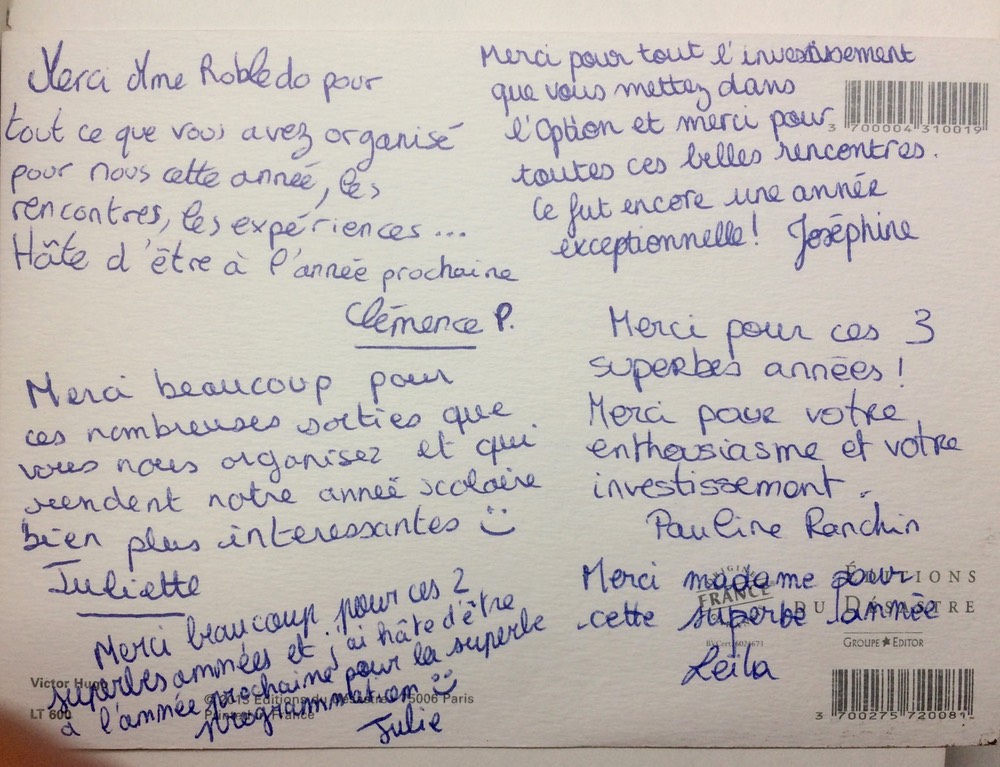 Merci Mme Robledo pour
tout ce que vous avez organisé
pour nous cette année, les
rencontres, les expériences...
Hâte d'être à l'année prochaine
Clémence P.
Merci pour tout l'investissement
que vous mettez dans
l'Option et merci pour
toutes ces belles rencontres.
Ce fut encore une année
exceptionnelle! Joséphine
3 700004 310019
Merci beaucoup pour
ces nombreuses sorties que
vous nous organisez et qui
rendent notre année scolaire
bien plus interessantes
Juliette
Merci pour ces 3
superbes années!
Merci pour votre
enthousiasme et votre
investissement.
Pauline Ranchin
Merci beaucoup pour ces 2
superbes années et j'ai hâte d'être
à l'année prochaine pour la superbe
programmation
Julie
Merci madame pour
cette superbe année
Leïla
FRANCE
ÉDITIONS
DU DÉSASTRE
GROUPE EDITOR
Victor Hugo
LT 600
75006 Paris
France
3 700275 720081